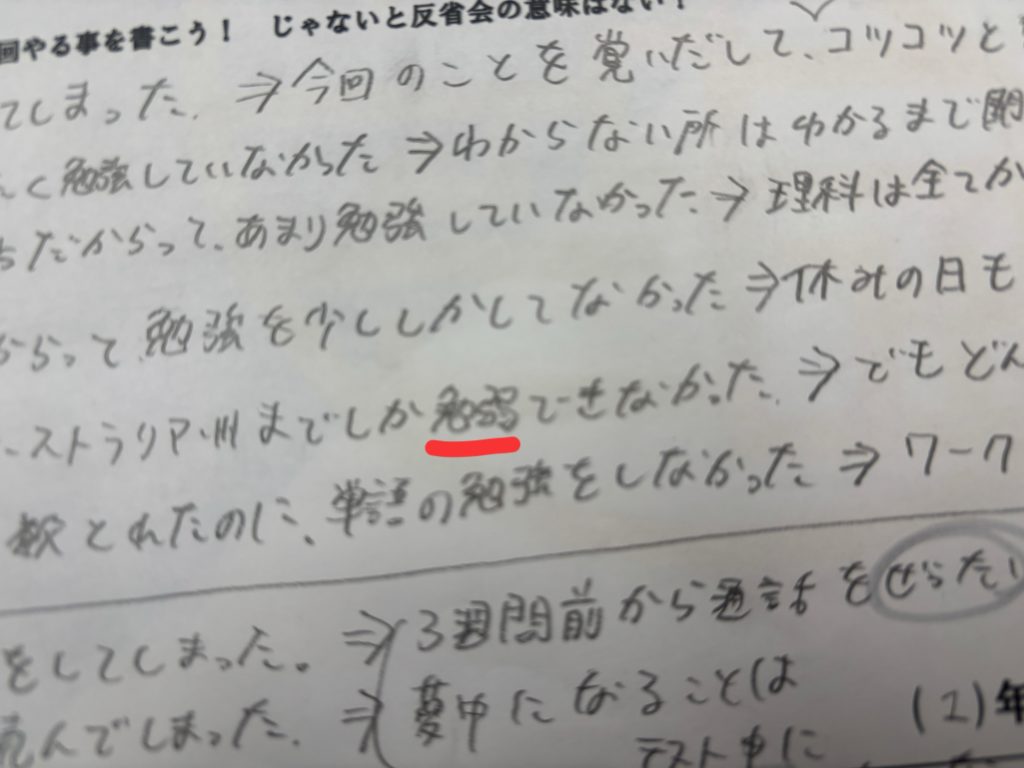 回やる事を書こう！　じゃないと反省会の意味はない！
てしまった. ⇒今回のことを覚いだして、コツコツと
く勉強していなからた ⇒わからない所はわかるまで
ちだからって、あまり勉強していなかった⇒理科は全てか
からって勉強を少ししかしてなかった⇒休みの日も
ストラリア州までしか勉弱できなかった. ⇒でもどん
数とれたのに、単語の勉強をしなかった⇒ワーク
をしてしまった。 ⇒3週間前から通話をぜったい
んでしまった. ⇒夢中になることは
テスト中に
(2)年